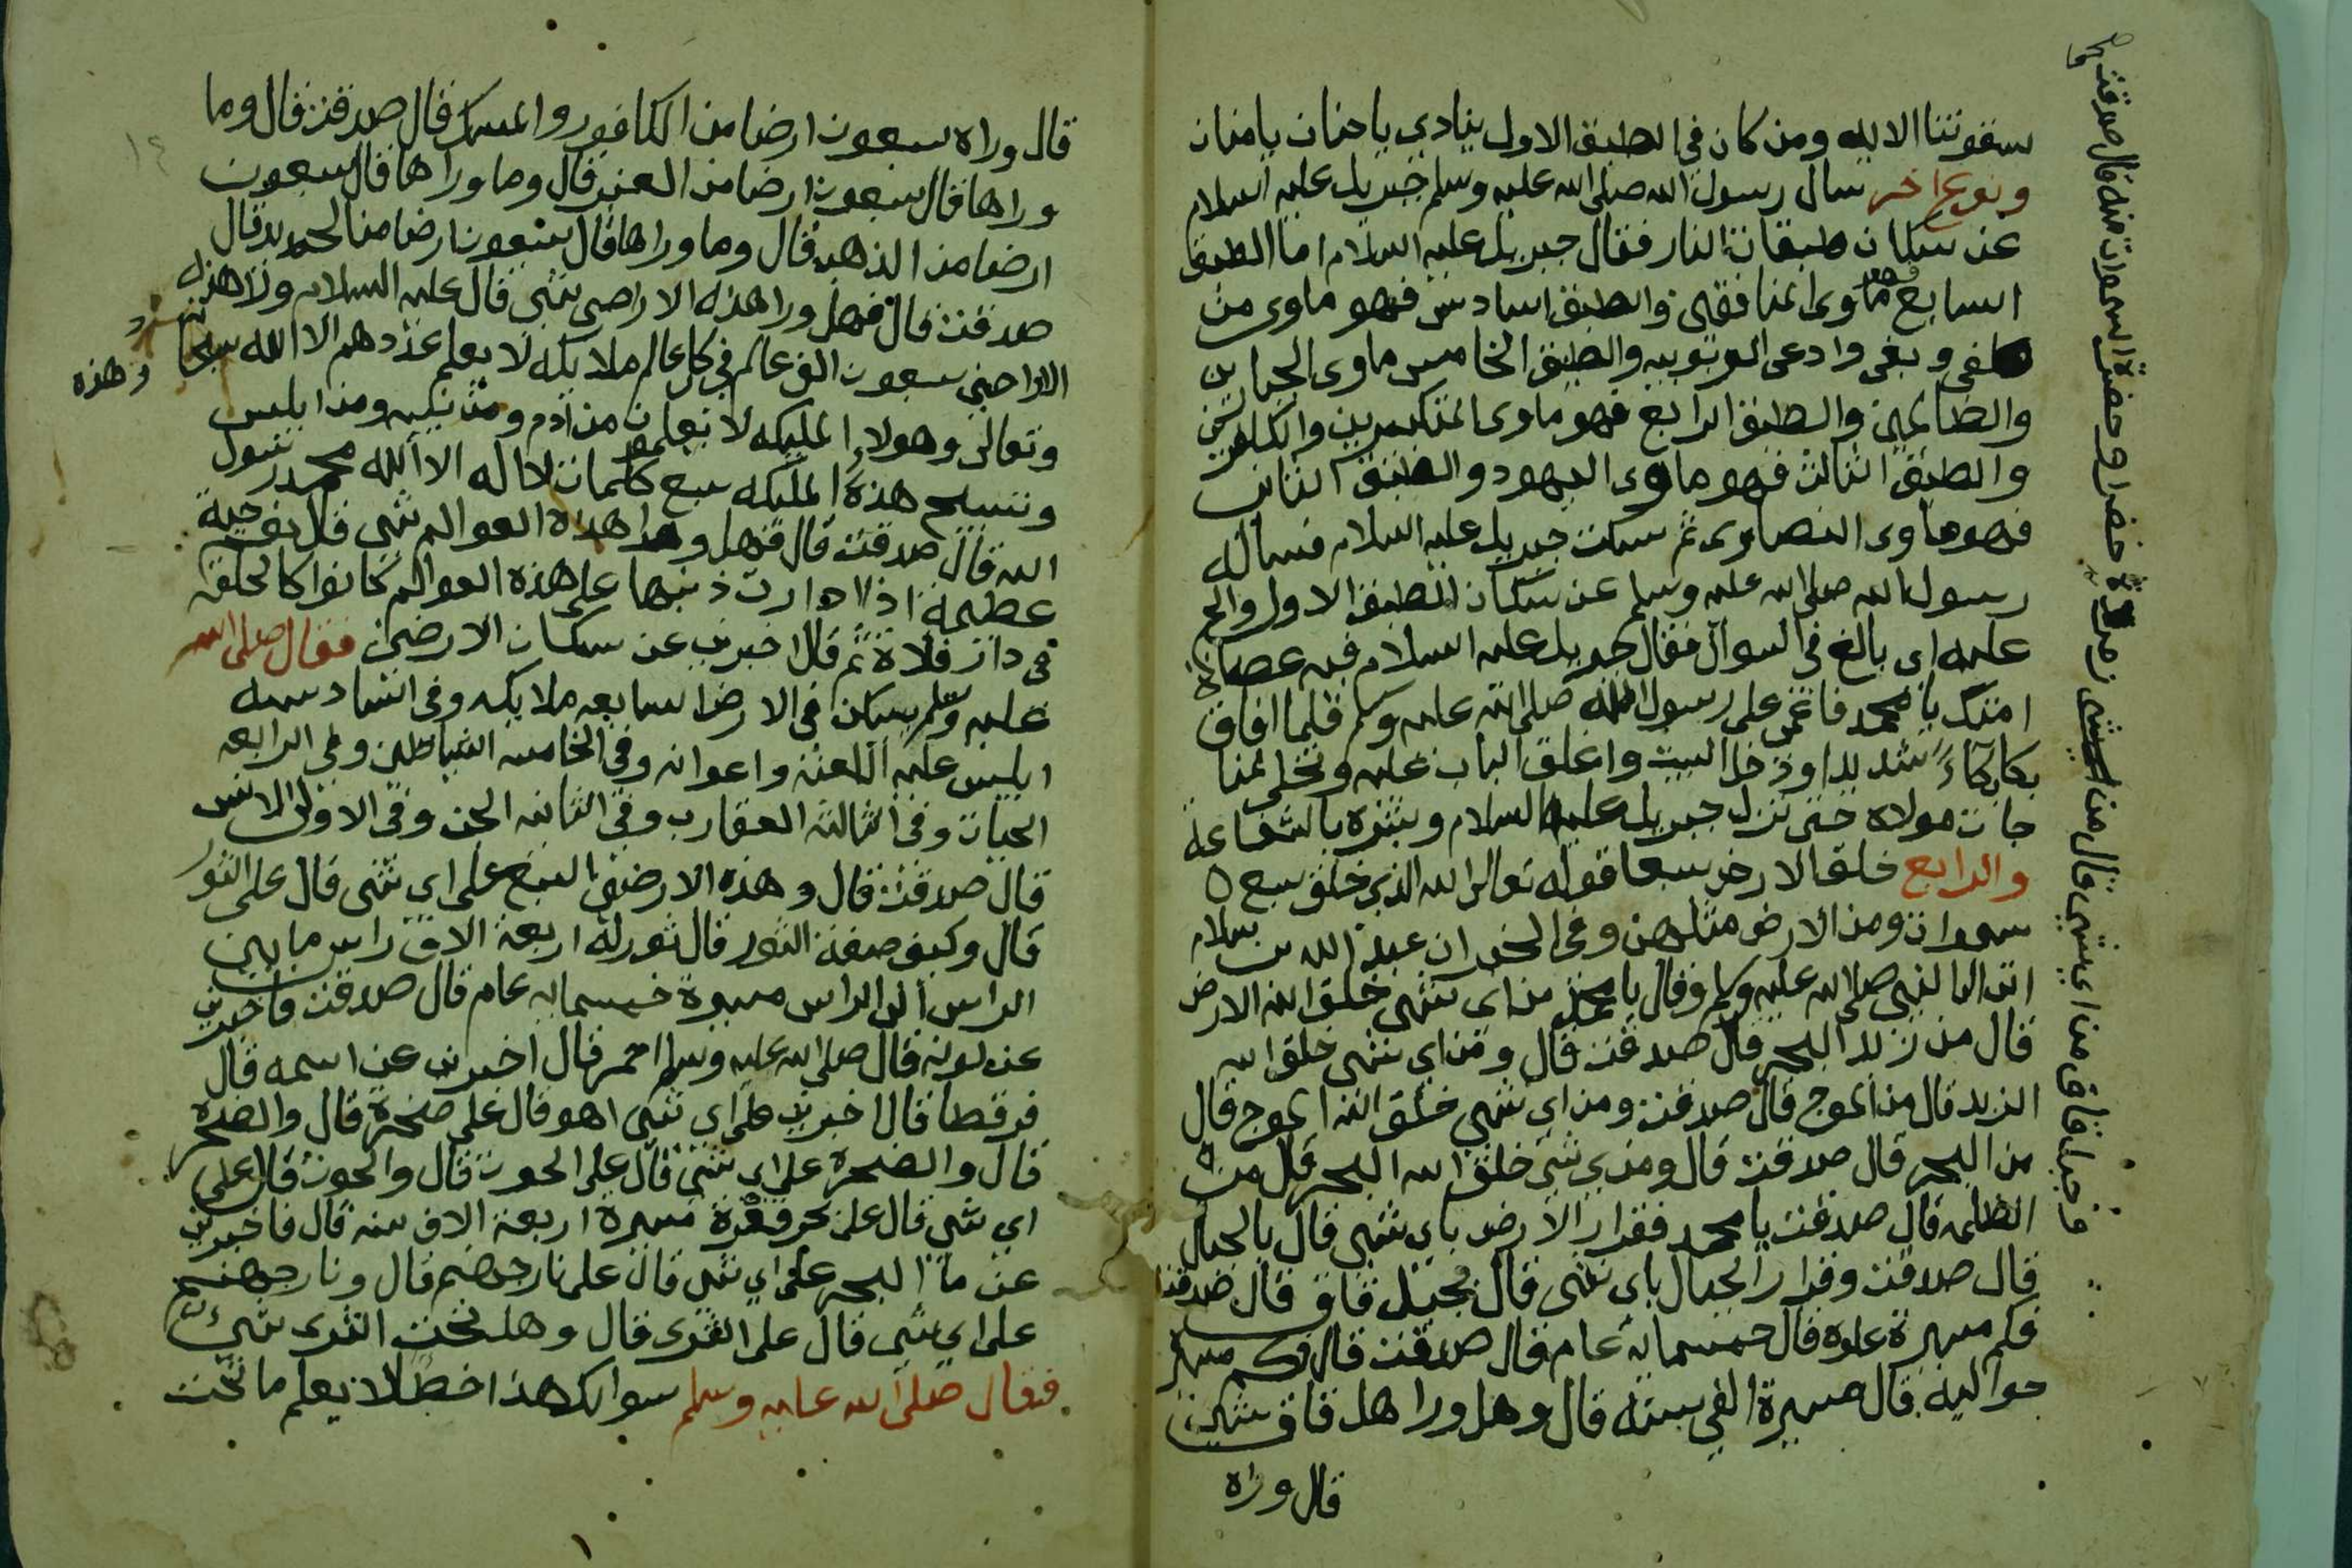 سقوتنا الا لله ومن كان في الطبق الاول ينادي يا حنان يا منان
ونوع اخر سال رسول الله صلى الله عليه وسلم جبريل عليه السلام
عن سكان طبقات النار فقال جبريل عليه السلام اما الطبق
السابع فهو ماوى المنافقين والطبق السادس فهو ماوى من
طغى وبغى وادعى الربوبيه والطبق الخامس ماوى الجبارين
والظالمين والطبق الرابع فهو ماوى المتكبرين والكافرين
والطبق الثالث فهو ماوى اليهود والطبق الثاني
فهو ماوى النصارى ثم سكت جبريل عليه السلام فساله
رسول الله صلى الله عليه وسلم عن سكان الطبق الاول والح
عليه اى بالغ في السوال فقال جبريل عليه السلام فيه عصاة
امتك يا محمد فاغمى على رسول الله صلى الله عليه وسلم فلما افاق
بكا بكاءً شديدا ودخل البيت واغلق الباب عليه وتخلى لمنا
جات مولاه حتى نزل جبريل عليه السلام وبشره بالشفاعة
والرابع خلق الارض سبعا قوله تعالى الله الذي خلق سبع
سموات ومن الارض مثلهن وفي الخبر ان عبد الله بن سلام
اتى الى النبي صلى الله عليه وسلم وقال يا محمد من اى شى خلق الله الارض
قال من زبد البحر قال صدقت قال ومن اي شى خلق الله
الزبد قال من الموج قال صدقت ومن اي شى خلق الله الموج قال
من البحر قال صدقت قال ومن اي شى خلق الله البحر قال من
الظلمه قال صدقت يا محمد فقرار الارض باى شى قال بالجبال
قال صدقت وقرار الجبال باى شى قال بجبل قاف قال صدقت
فكم مسيرة علوه قال خمسمايه عام قال صدقت قال فكم مسيرة
حواليه قال مسيرة الفي سنه قال وهل ورا هل قاف شى
قال وراه
وجبل قاف من اي شى قال من زمردة خضرا وخضرة السموات منه قال صدقت
قال وراه سبعون ارضا من الكافور والمسك قال صدقت قال وما
وراها قال سبعون ارضا من العنبر قال وما وراها قال سبعون
ارضا من الذهب قال وما وراها قال سبعون ارضا من الحديد قال
صدقت قال فهل ورا هذه الاراضي شى قال عليه السلام ورا هذه
الاراضي سبعون الف عالم في كل عالم ملايكه لا يعلم عددهم الا الله سبحانه
وتعالى وهولاء المليكه لا يعلمون من آدم ومن نبيه ومن ابليس
وتسبيح هذه المليكه سبع كلمات لا اله الا الله محمد رسول
الله قال صدقت قال فهل ورا هذه العوالم شى قال نعم حية
عظيمة اذا ادارت ذنبها على هذه العوالم كانوا كالحلقه
في دار فلاة ثم قال اخبرني عن سكان الارضين فقال صلى الله
عليه وسلم يسكن في الارض السابعه ملايكه وفي السادسه
ابليس عليه اللعنه واعوانه وفي الخامسه الشياطين وفي الرابعه
الحيات وفي الثالثه العقارب وفي الثانيه الجن وفي الاولى الانس
قال صدقت قال وهذه الارضين السبع على اي شى قال على الثور
قال وكيف صفة الثور قال ثور له اربعة الاف راس ما بين
الراس الى الراس مسيرة خمسمايه عام قال صدقت فاخبرني
عن لونه قال صلى الله عليه وسلم احمر قال اخبرني عن اسمه قال
فرقطا قال اخبرني على اي شى اهو قال على صخرة قال والصخرة
قال والصخرة على اى شى قال على الحوت قال والحوت قال على
اي شى قال على بحر قعره مسيرة اربعة الاف سنه قال فاخبرني
عن ما البحر على اي شى قال على نار جهنم قال ونار جهنم
على اي شى قال على الثرى قال وهل تحت الثرى شى
فقال صلى الله عليه وسلم سوالك هذا خطا لا يعلم ما تحت